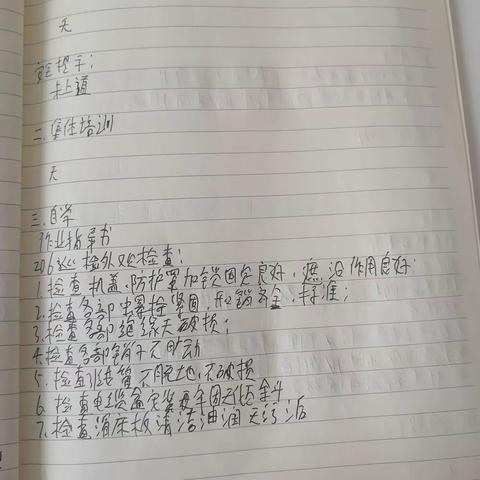 无
安全提示:
未上道
二.集体培训
无
三.自学
作业指导书
巡检外观检查:
1.检查机盖、防护罩加锁固定良好,遮沿作用良好;
2.检查各部螺栓紧固,开口销齐全、标准;
3.检查各部绝缘无破损;
4.检查各部销子无旷动
5.检查 管不脱地,不破损
6.检查 安装牢固无
7.检查滑床板清洁油润无污活